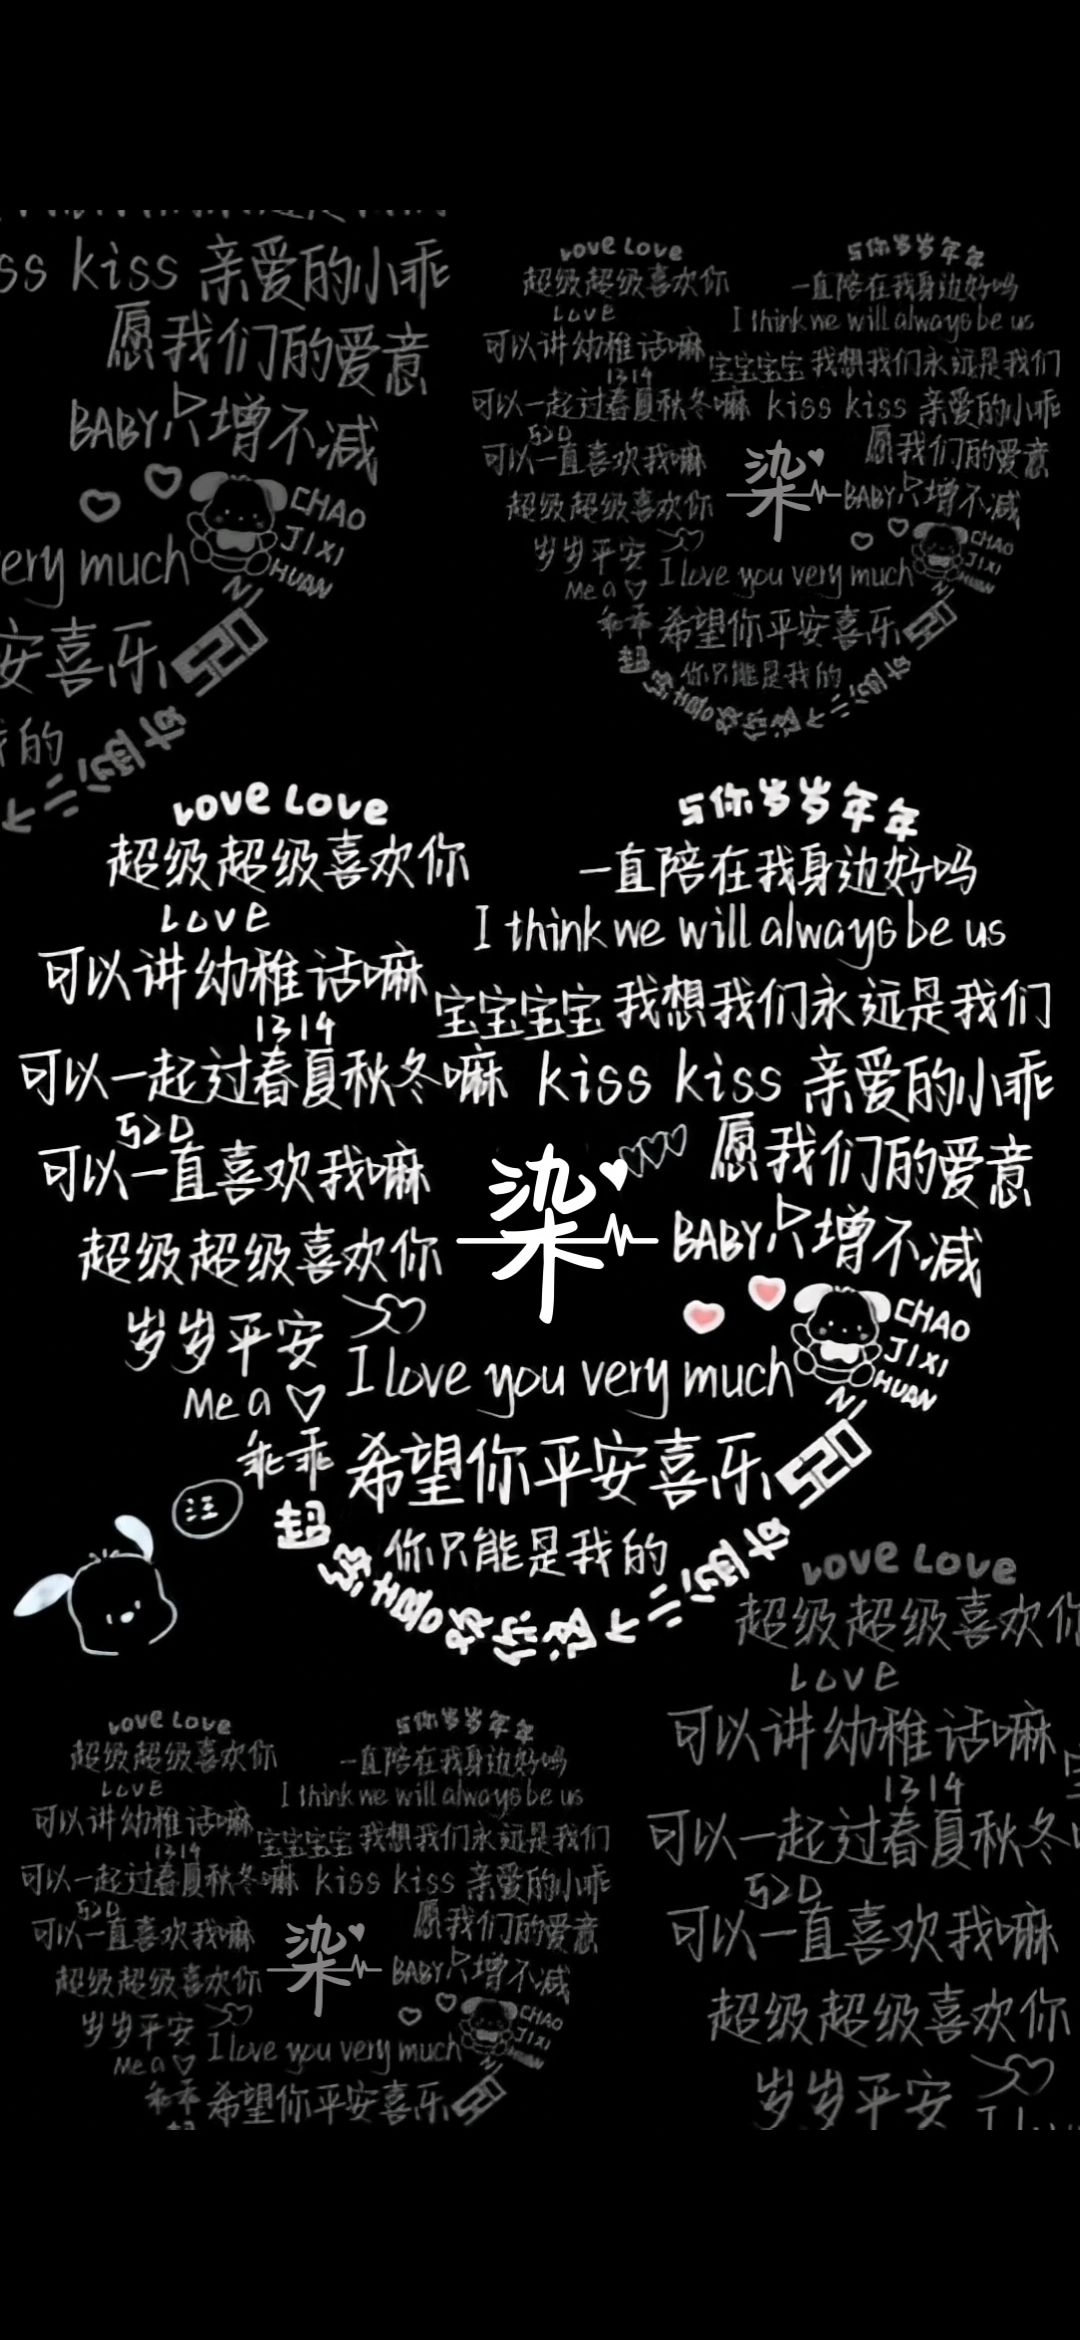 ss kiss 亲爱的小乖
愿我们的爱意
BABY只增不减
CHAO
JIXI
HUAN
NI
ery much
安喜乐
520
我的
Love Love
与你岁岁年年
超级超级喜欢你
一直陪在我身边好吗
Love
I think we will always be us
可以讲幼稚话嘛
宝宝宝宝 我想我们永远是我们
1314
可以一起过春夏秋冬嘛 kiss kiss 亲爱的小乖
520
可以一直喜欢我嘛
染
愿我们的爱意
超级超级喜欢你
BABY只增不减
岁岁平安
CHAO
JIXI
HUAN
NI
Me a
I love you very much
乖乖 希望你平安喜乐
520
你只能是我的
Love Love
与你岁岁年年
超级超级喜欢你
一直陪在我身边好吗
Love
I think we will always be us
可以讲幼稚话嘛
宝宝宝宝 我想我们永远是我们
1314
可以一起过春夏秋冬嘛 kiss kiss 亲爱的小乖
520
可以一直喜欢我嘛
愿我们的爱意
染
超级超级喜欢你
BABY只增不减
岁岁平安
CHAO
JIXI
HUAN
NI
Me a
I love you very much
乖乖 希望你平安喜乐
520
汪
你只能是我的
Love Love
超级超级喜欢你
Love
可以讲幼稚话嘛
1314
可以一起过春夏秋冬
520
可以一直喜欢我嘛
超级超级喜欢你
岁岁平安
Love Love
与你岁岁年年
超级超级喜欢你
一直陪在我身边好吗
Love
I think we will always be us
可以讲幼稚话嘛
宝宝宝宝 我想我们永远是我们
1314
可以一起过春夏秋冬嘛 kiss kiss 亲爱的小乖
520
可以一直喜欢我嘛
愿我们的爱意
染
超级超级喜欢你
BABY只增不减
岁岁平安
CHAO
JIXI
HUAN
NI
Me a
I love you very much
乖乖 希望你平安喜乐
520